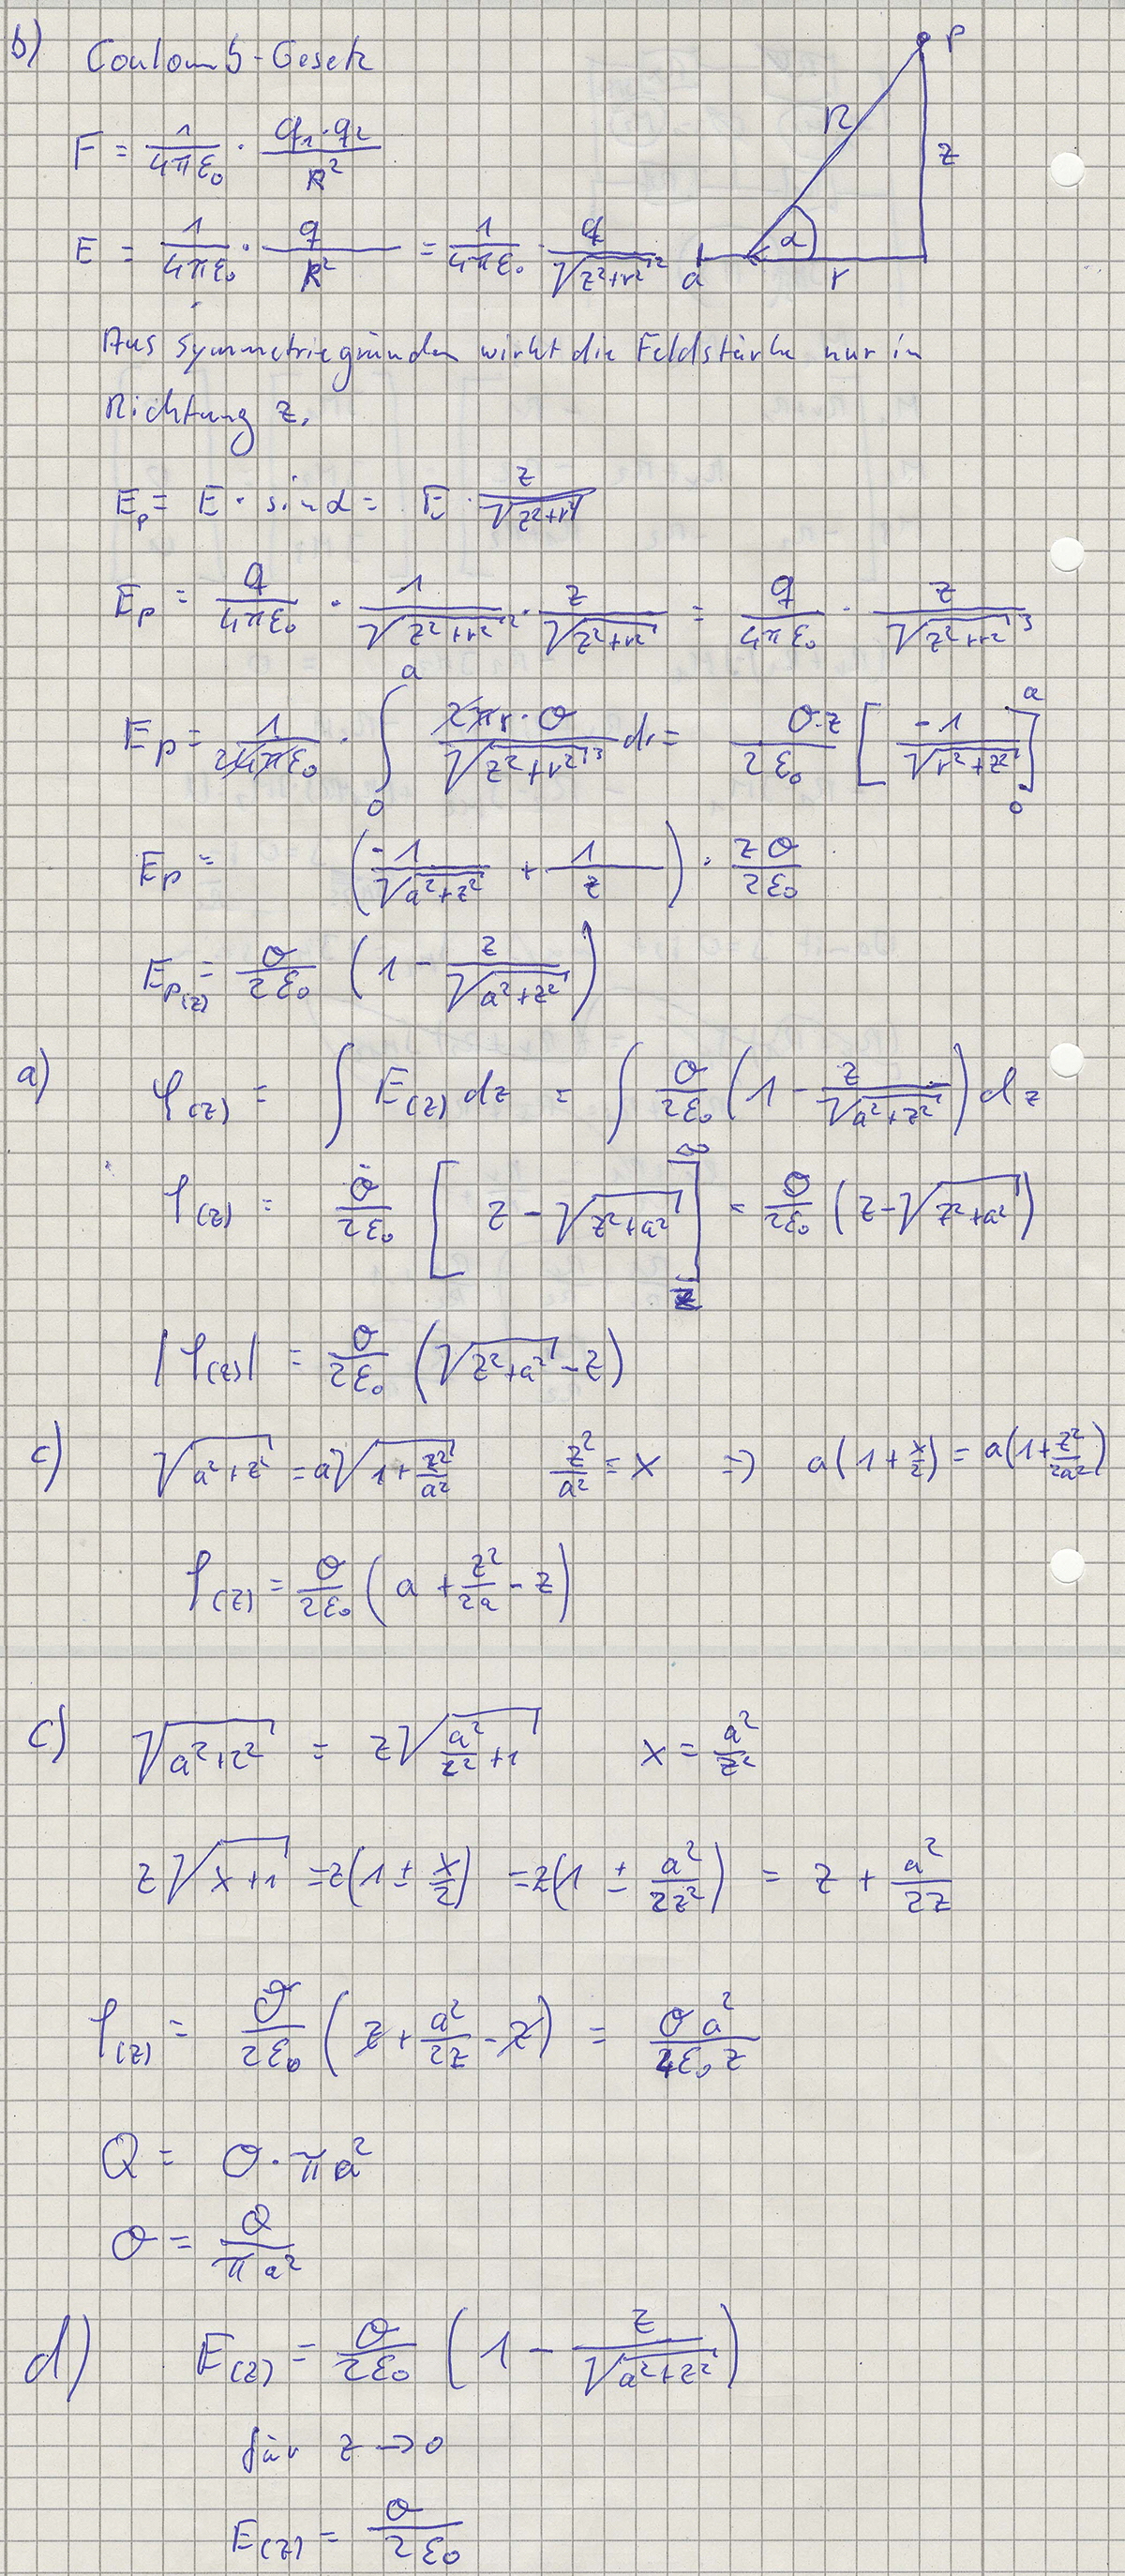 b) Coulomb-Gesetz
P
R
z
α
a
r
F = 1/(4πε₀) · (q₁·q₂)/R²
E = 1/(4πε₀) · q/R² = 1/(4πε₀) · q/√(z²+r²)²
Aus Symmetriegründen wirkt die Feldstärke nur in
Richtung z.
E_p = E · sin α = E · z/√(z²+r²)
E_p = q/(4πε₀) · 1/√(z²+r²)² · z/√(z²+r²) = q/(4πε₀) · z/√(z²+r²)³
E_p = 1/(2 4πε₀) · ∫₀^a (2πr·σ)/√(z²+r²)³ dr = (σ·z)/(2ε₀) [-1/√(r²+z²)]₀^a
E_p = (-1/√(a²+z²) + 1/z) · zσ/(2ε₀)
E_p(z) = σ/(2ε₀) (1 - z/√(a²+z²))
a) φ(z) = ∫ E(z) dz = ∫ σ/(2ε₀) (1 - z/√(a²+z²)) dz
φ(z) = σ/(2ε₀) [z - √(z²+a²)]_z^∞ = σ/(2ε₀) (z - √(z²+a²))
|φ(z)| = σ/(2ε₀) (√(z²+a²) - z)
c) √(a²+z²) = a√(1+z²/a²) z²/a² = x ⇒ a(1+x/2) = a(1+z²/(2a²))
φ(z) = σ/(2ε₀) (a + z²/(2a) - z)
c) √(a²+z²) = z√(a²/z²+1) x = a²/z²
z√(x+1) = z(1 ± x/2) = z(1 ± a²/(2z²)) = z + a²/(2z)
φ(z) = σ/(2ε₀) (z + a²/(2z) - z) = σa²/(4ε₀z)
Q = σ·πa²
σ = Q/(πa²)
d) E(z) = σ/(2ε₀) (1 - z/√(a²+z²))
für z → 0
E(z) = σ/(2ε₀)